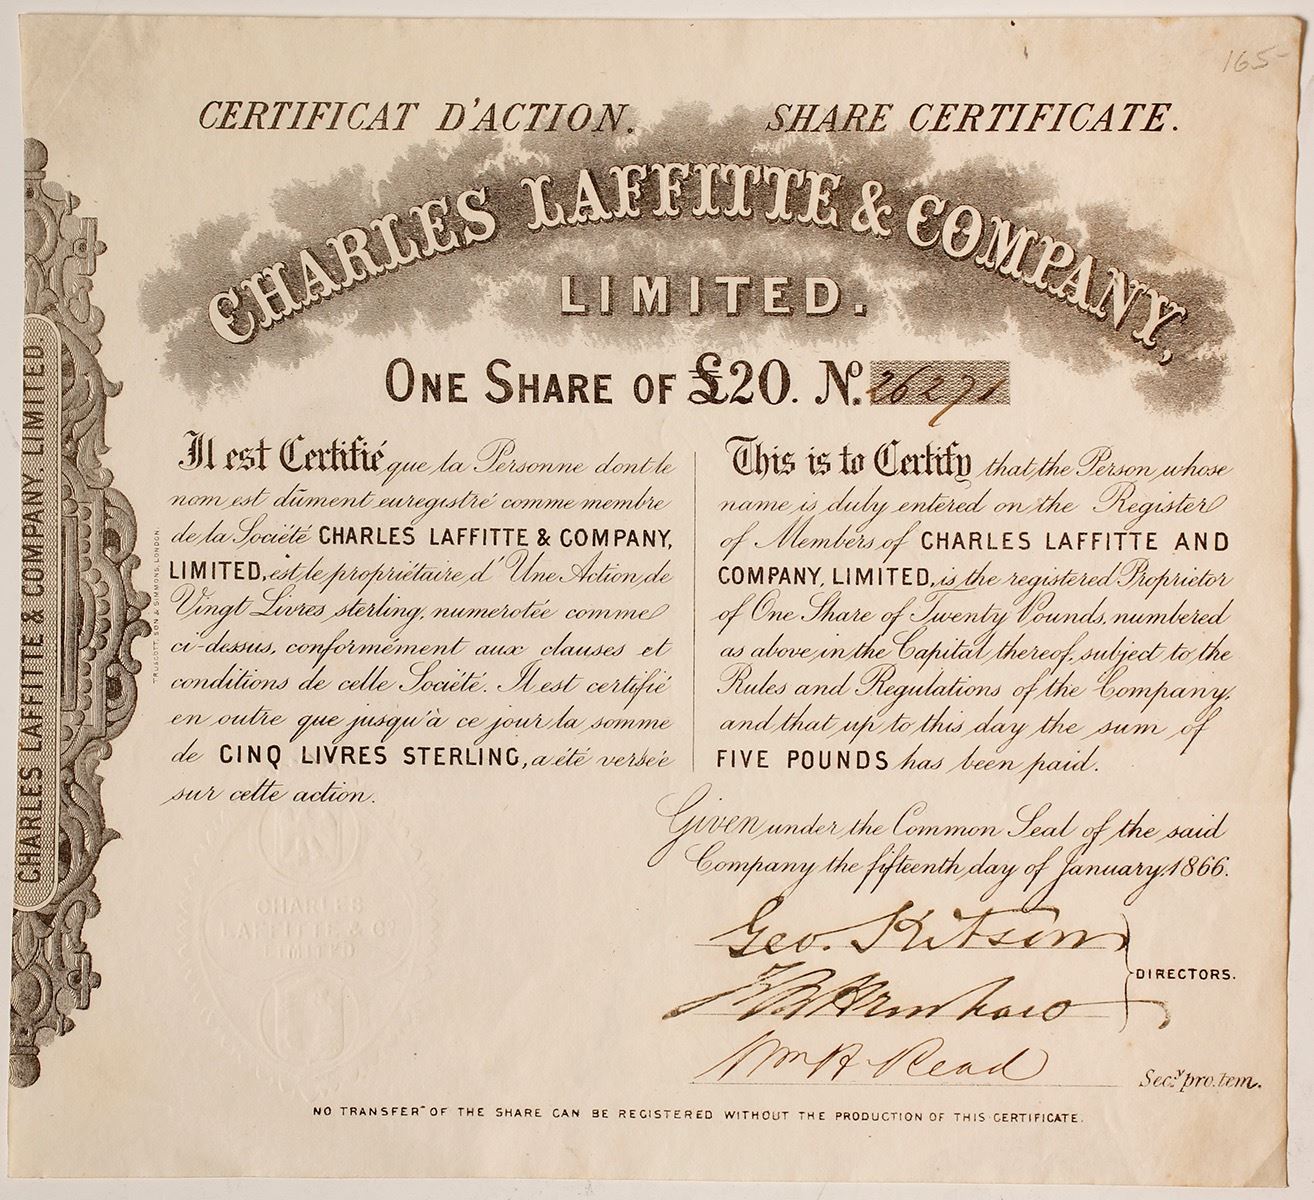 165-
CERTIFICAT D'ACTION. SHARE CERTIFICATE.
CHARLES LAFFITTE & COMPANY,
LIMITED.
ONE SHARE OF £20. No. 26271
Il est Certifié que la Personne dont le
nom est dûment euregistré comme membre
de la Société CHARLES LAFFITTE & COMPANY,
LIMITED, est le propriétaire d'Une Action de
Vingt Livres sterling, numerotée comme
ci-dessus, conformément aux clauses et
conditions de celle Société. Il est certifié
en outre que jusqu'à ce jour la somme
de CINQ LIVRES STERLING, a été versée
sur cette action.
This is to Certify that the Person whose
name is duly entered on the Register
of Members of CHARLES LAFFITTE AND
COMPANY, LIMITED, is the registered Proprietor
of One Share of Twenty Pounds, numbered
as above in the Capital thereof, subject to the
Rules and Regulations of the Company,
and that up to this day the sum of
FIVE POUNDS has been paid.
Given under the Common Seal of the said
Company the fifteenth day of January, 1866.
Geo. Kitson
DIRECTORS.
Wm H. Read
Secy. pro. tem.
NO TRANSFER OF THE SHARE CAN BE REGISTERED WITHOUT THE PRODUCTION OF THIS CERTIFICATE.
CHARLES LAFFITTE & COMPANY, LIMITED
TRUSCOTT, SON & SIMMONS, LONDON.
CHARLES
LAFFITTE & CO.
LIMITED